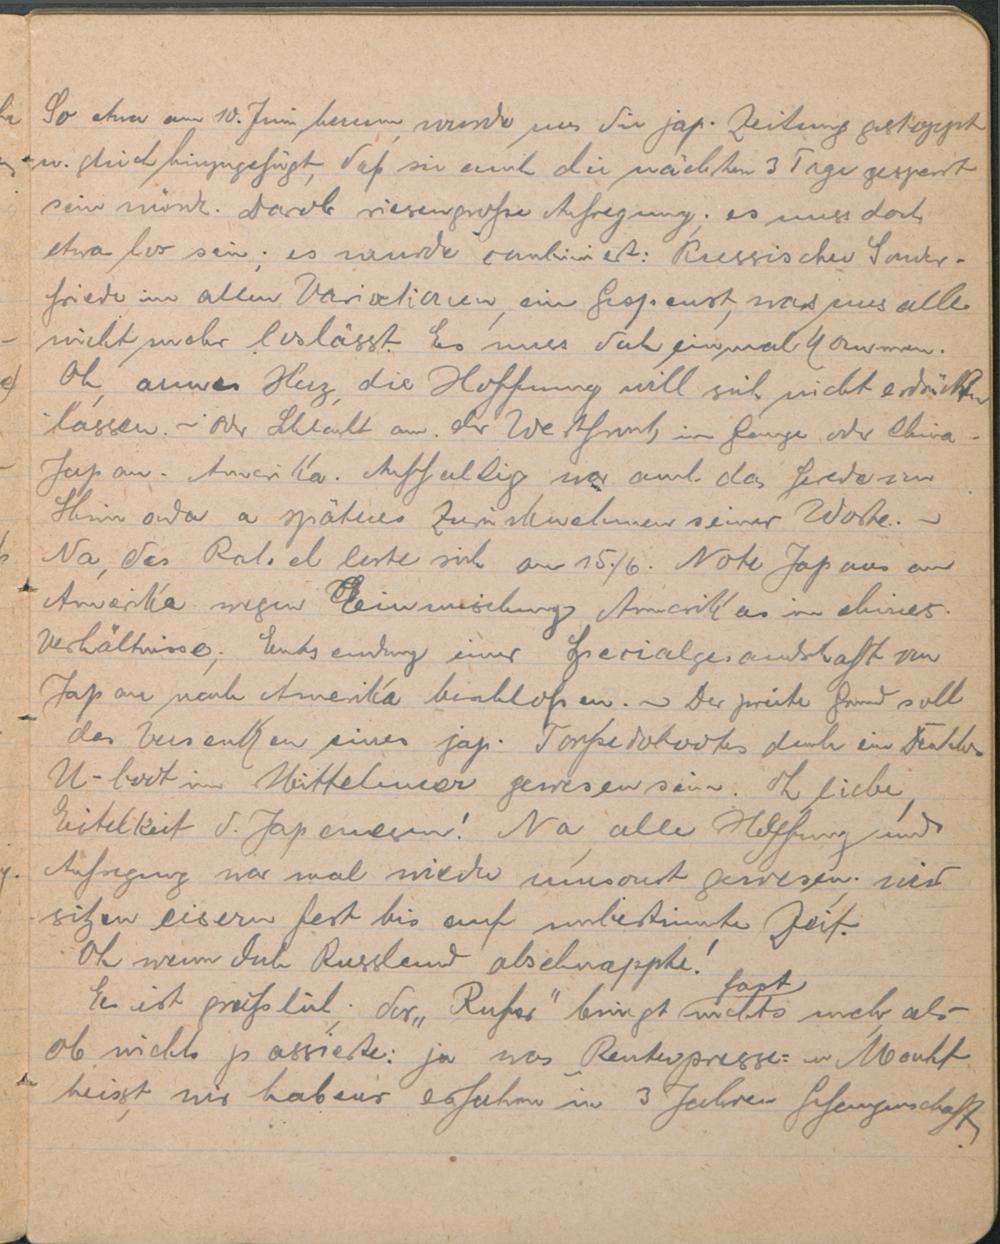 So etwa am 10. Juni herum, wurde uns die jap. Zeitung gestoppt
u. gleich hinzugefügt, daß sie auch die nächsten 3 Tage gesperrt
sein würde. Darob riesengroße Aufregung; es muss doch
etwa los sein; es wurde combiniert: Russischer Sonder-
friede in allen Variationen, ein Gespenst, was uns alle
nicht mehr loslässt. Es muss doch einmal kommen.
Oh, armes Herz, die Hoffnung will sich nicht erdrücken
lassen. – Oder Schlacht an der Westfront im Gange oder China-
Japan-Amerika. Auffallig war auch das Gerede von
u. späteres Zurücknehmen seiner Worte. –
Na, das Ratsel löste sich am 15./6. Note Japans an
Amerika wegen Einmischung Amerikas in chines.
Verhältnisse; Entsendung einer Specialgesandschaft von
Japan nach Amerika beschloßen. – Der zweite Grund soll
das Versenken eines jap. Torpedobootes durch ein Deutsches
U-boot im Mittelmeer gewesen sein. Oh liebe,
Eitelkeit d. Japanesen! Na, alle Hoffnung und
Aufregung war mal wieder umsonst gewesen. wir
sitzen eisern fest bis auf unbestimmte Zeit.
Oh wenn doch Russland abschnappte!
Es ist gräßlich, der "Rufer" bringt fast nichts mehr als
ob nichts passierte: ja was Reuterpresse = u. Macht
heisst, wir haben's erfahren in 3 Jahren Gefangenschaft,